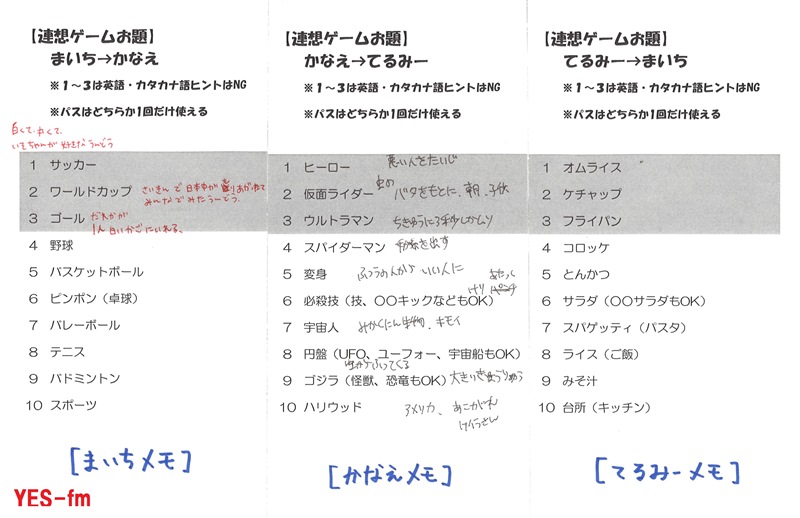 【連想ゲームお題】
まいち→かなえ
※1～3は英語・カタカナ語ヒントはNG
※パスはどちらか1回だけ使える
白くて、丸くて、
いもちゃんが好きなうんどう
1 サッカー
2 ワールドカップ さいきんで日本中が盛りあがって
みんなでみたうんどう。
3 ゴール だれかが
1人 白いかごにいれる、
4 野球
5 バスケットボール
6 ピンポン（卓球）
7 バレーボール
8 テニス
9 バドミントン
10 スポーツ
[まいちメモ]
YES-fm
【連想ゲームお題】
かなえ→てるみー
※1～3は英語・カタカナ語ヒントはNG
※パスはどちらか1回だけ使える
1 ヒーロー 悪い人をたいじ
2 仮面ライダー 虫の バタをもとに、朝、子供
3 ウルトラマン ちきゅうに3分しか
4 スパイダーマン を出す
5 変身 ふつうの人から いい人に
6 必殺技（技、〇〇キックなどもOK） けり
7 宇宙人 みかくにん生物、キモイ
8 円盤（UFO、ユーフォー、宇宙船もOK）
ふってくる
9 ゴジラ（怪獣、恐竜もOK） 大きい きょうりゅう
10 ハリウッド アメリカ、あこがれ
[かなえメモ]
【連想ゲームお題】
てるみー→まいち
※1～3は英語・カタカナ語ヒントはNG
※パスはどちらか1回だけ使える
1 オムライス
2 ケチャップ
3 フライパン
4 コロッケ
5 とんかつ
6 サラダ（〇〇サラダもOK）
7 スパゲッティ（パスタ）
8 ライス（ご飯）
9 みそ汁
10 台所（キッチン）
[てるみーメモ]